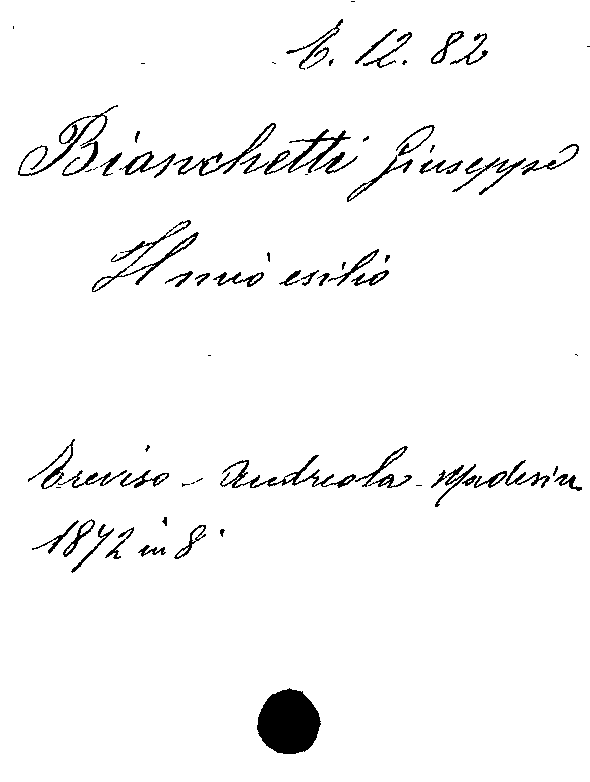 E. 12. 82
Bianchetti Giuseppe
Il mio esilio
Treviso - Andreola - Medesin
1872 in 8°